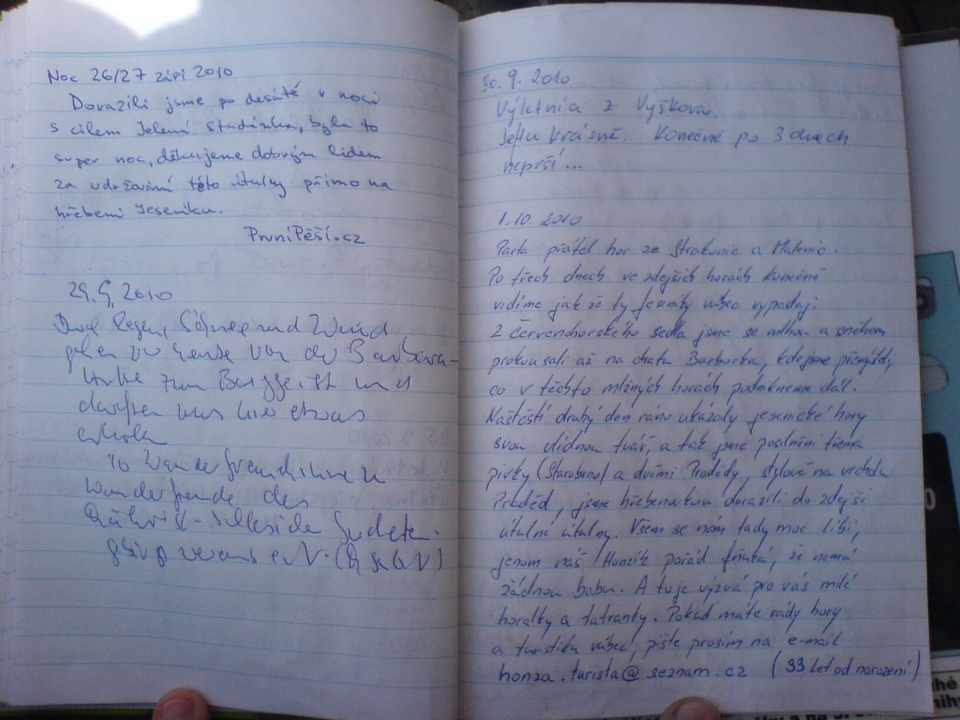 Noc 26/27 září 2010
Dorazili jsme po desáté v noci
s cílem Jelení studánka, byla to
super noc, děkujeme dobrým lidem
za udržování této útulny přímo na
hřebeni Jeseníku.
PrvníPěší.cz
29.9.2010
Regen, Schnee und Wind
wir heute von der Barbara-
zum Berggeist und
durften uns hier etwas
erholen
10 Wanderfreundinnen
Wanderfreunde des
Mährisch-Schlesische Sudeten-
30.9.2010
Výletníci z Vyškova.
Je tu krásně. Konečně po 3 dnech
neprší...
1.10.2010
Parta přátel hor ze Strakonic a Malenic.
Po třech dnech ve zdejších horách konečně
vidíme jak že ty Jeseníky vůbec vypadají.
Z Červenohorského sedla jsme se mlhou a sněhem
prokousali až na chatu Barborka, kde jsme přemýšleli,
co v těchto mlžných horách podnikneme dál.
Naštěstí druhý den ráno ukázaly jesenické hory
svou vlídnou tvář, a tak jsme posilněni třema
pivky (Starobrno) a dvěmi Pradědy, stylově na vrcholu
Praděd, jsme hřebenovkou dorazili do zdejší
útulné útulny. Všem se nám tady moc líbí,
jenom náš Honzík pořád fňuká, že nemá
žádnou babu. A to je výzva pro vás milé
horalky a tatranky. Pokud máte rády hory
a turistiku vůbec, pište prosím na e-mail
honza.turista@seznam.cz (33 let od narození)